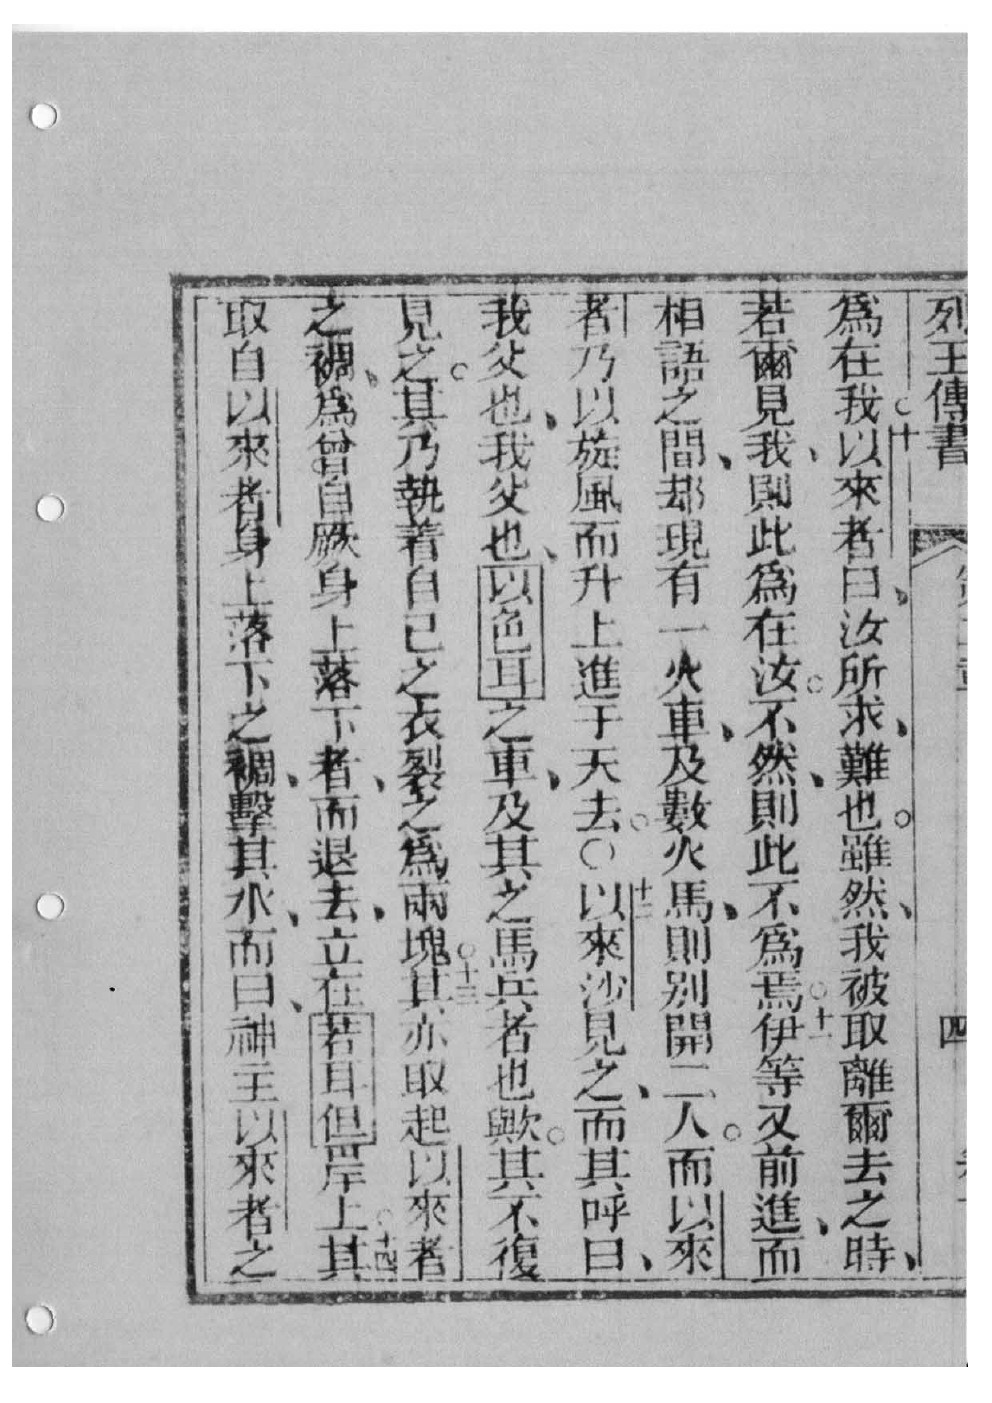 列王傳書 四
為在我○十以來者曰、汝所求、難也。雖然、我被取離爾去之時、
若爾見我、則此為在汝。不然、則此不為焉○十一伊等又前進、而
相語之間、却現有一火車、及數火馬、則別開二人。而以來
者乃以旋風而升上進于天去。○十二以來沙見之、而其呼曰、
我父也、我父也、以色耳之車、及其之馬兵者也歟。其不復
見之。其乃執着自己之衣裂之為兩塊○十三其亦取起以來者
之裯、為曾自厥身上落下者、而退去、立在若耳但岸上○十四其
取自以來者身上落下之裯、擊其水、而曰、神主以來者之